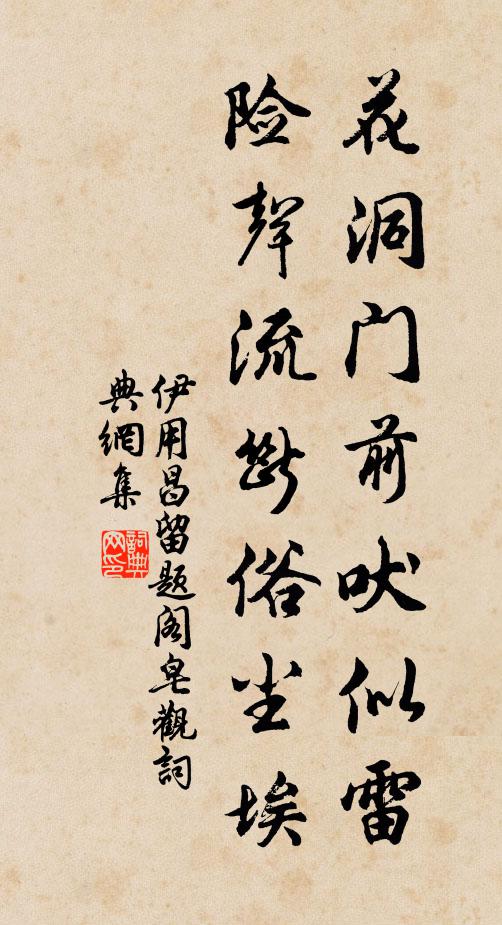 花洞门前吠似雷
险声流断俗尘埃
伊用昌留题阁皂观词
典网集
詞典
网印